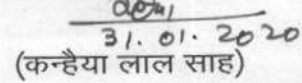 31.01.2020
(कन्हैया लाल साह)